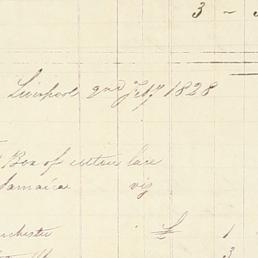 3 - 3
Liverpool 2nd July 1828
Box of cotton lace
Jamaica viz
nchester £ 1
3